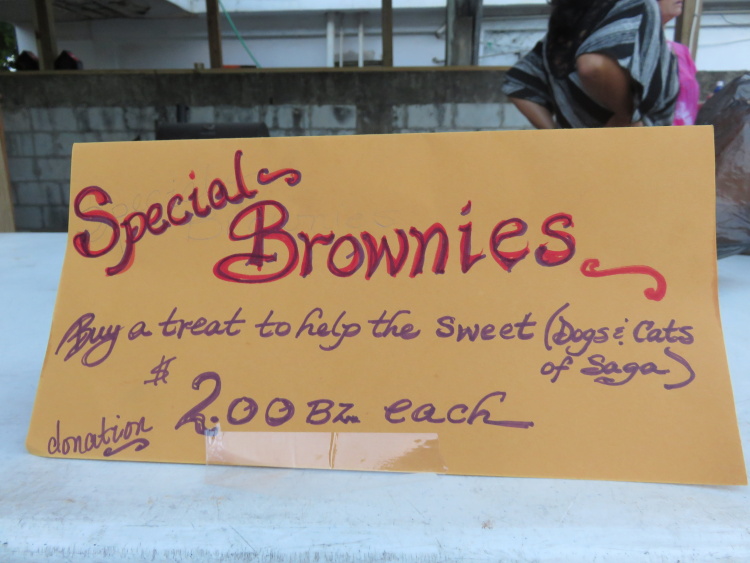 Special
Brownies
Buy a treat to help the sweet (Dogs & Cats
of Saga)
$ 2.00 BZ. each
donation